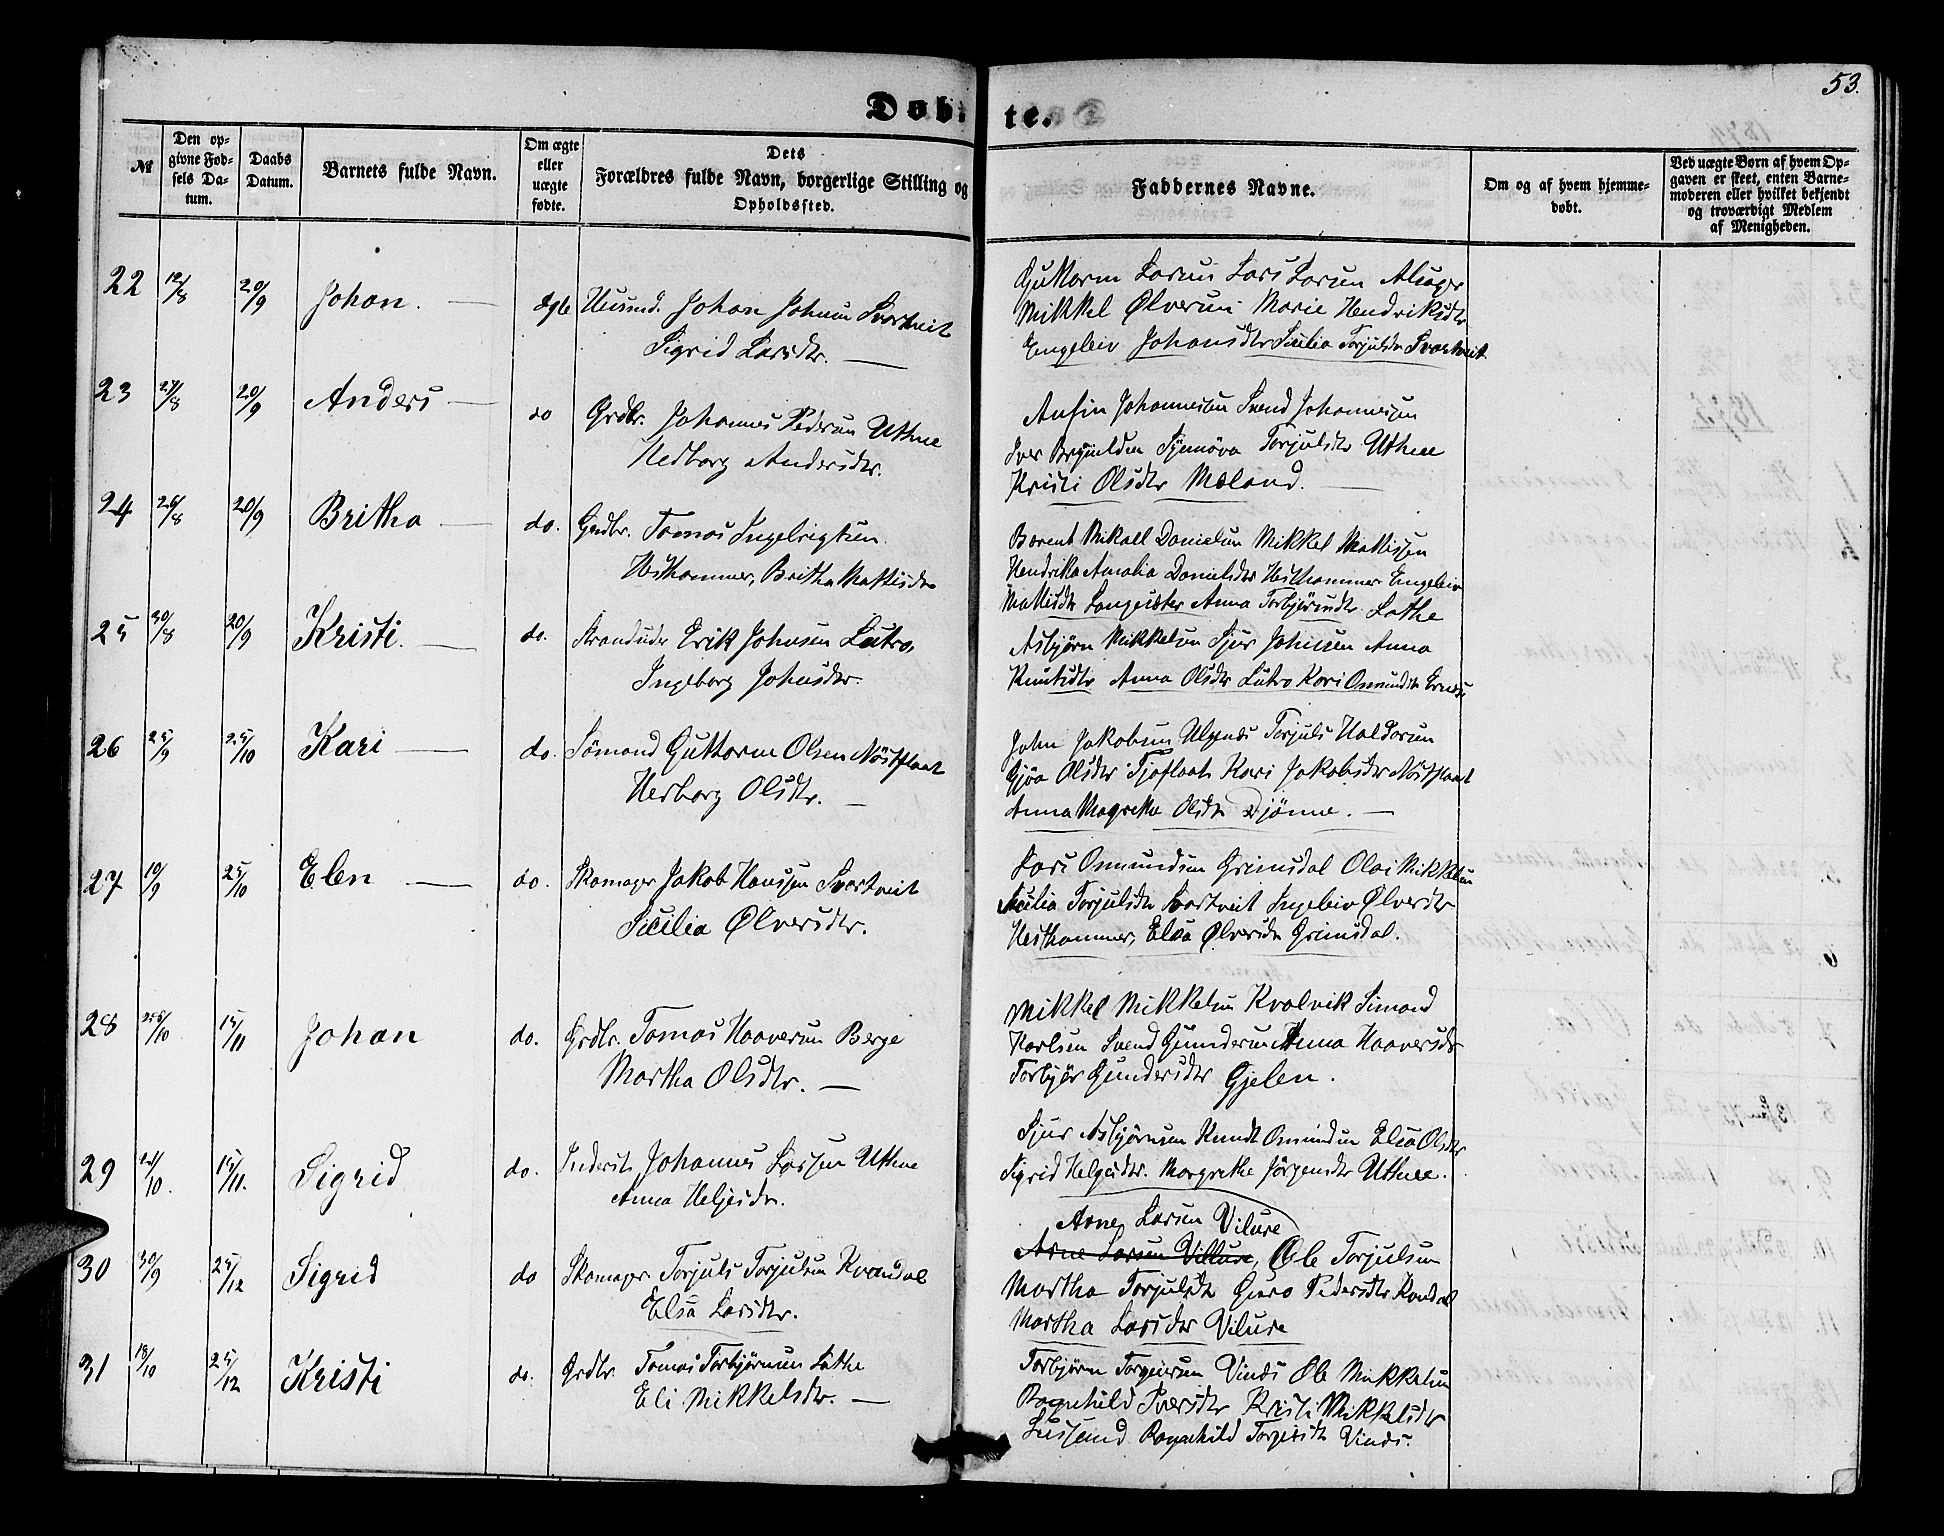 53.
Døbte.
№
Den opgivne Fødsels Datum.
Daabs Datum.
Barnets fulde Navn.
Om ægte eller uægte fødte.
Dets Forældres fulde Navn, borgerlige Stilling og Opholdssted.
Faddernes Navne.
Om og af hvem hjemmedøbt.
Ved uægte Børn af hvem Opgaven er skeet, enten Barnemoderen eller hvilket bekjendt og troværdigt Medlem af Menigheden.
22 12/8 20/9 Johan. — Ægte Husmd. Johan Johnsen Svartveit
Sigrid Larsdtr. —
Guttorm Larsen Lars Larsen Alsager
Mikkel Ølversen Marie Hendriksdtr
Engeleiv Johansdtr Sicilia Torjulsdtr Svartveit
23 27/8 20/9 Anders — do Grdbr. Johannes Pedersen Uthne
Herborg Andersdtr.
Anfin Johannessen Svend Johannessen
Iver Brynildsen Synnøva Torjulsdtr Uthne
Kristi Olsdtr Mæland. —
24 26/8 20/9 Britha — do. Grdbr. Tomas Ingebrigtsen
Hesthammer, Britha Mattisdtr
Berent Mikael Danielsen Mikkel Mattissen
Hendrika Amalia Danielsdtr Hesthammer Engeleiv
Mattisdtr Langesæter Anna Torbjørnsdtr Lothe
25 30/8 20/9 Kristi. — do. Strandsidder Erik Johnsen Lutro,
Ingeborg Johnsdtr.
Asbjørn Mikkelsen Sjur Johnsen Anna
Knutsdtr Anna Olsdtr Lutro Kari Osmundsdtr Ernes
26 25/9 25/10 Kari — do. Sømand Guttorm Olsen Nøstflaat
Herborg Olsdtr. —
John Jakobsen Ulgenæs Torjuls Haldorsen
Gjøa Olsdtr Tjoflaat Kari Jakobsdtr Nøstflaat
Anna Magrethe Olsdtr Djønne. —
27 10/9 25/10 Elen — do. Skomager Jakob Hanssen Svartveit
Sicilia Ølversdtr.
Lars Osmundsen Grimsdal Olai Mikkelsen
Sicilia Torjulsdtr Svartveit Ingeleiv Ølversdtr
Hesthammer, Elsa Ølversdtr Grimsdal.
28 25/10 15/11 Johan do. Grdbr. Tomas Haaversen Berge
Martha Olsdtr. —
Mikkel Mikkelsen Kvalvik Simond
Karlsen Svend Gundersen Anna Haaversdtr
Torbjør Gundersdtr Gjelen.
29 21/10. 15/11. Sigrid do. Inderst Johannes Larssen Uthne
Anna Heljesdtr.
Sjur Asbjørnsen Knudt Osmundsen Elsa Olsdtr
Sigrid Helgesdtr. Margrethe Jørgensdtr Uthne.
30 30/9 25/12 Sigrid do Skomager Torjuls Torjulsen Kvandal
Elsa Larsdtr.
Arne Larsen Vilure
Arne Larsen Villure, Ole Torjulsen
Martha Torjulsdtr Guro Pedersdtr Kvandal
Martha Larsdtr Vilure
31 18/10 25/12 Kristi do. Grdbr. Tomas Torbjørnsen Lothe
Eli Mikkelsdtr. —
Torbjørn Torgeirsen Vinæs Ole Mikkelsen
Ragnhild Iversdtr Kristi Mikkelsdtr
Ragnhild Torgersdtr Vinæs.